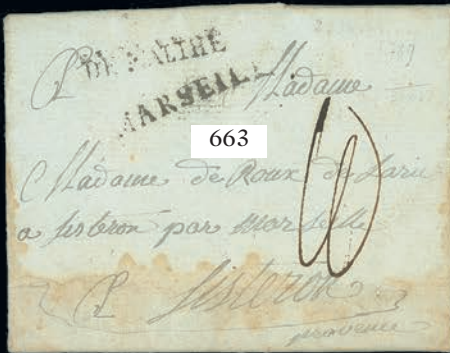 DE MALTHE
MARSEILLE
Madame
663
Madame de Roux de Laric
a sisteron par marseille
Sisteron
provence